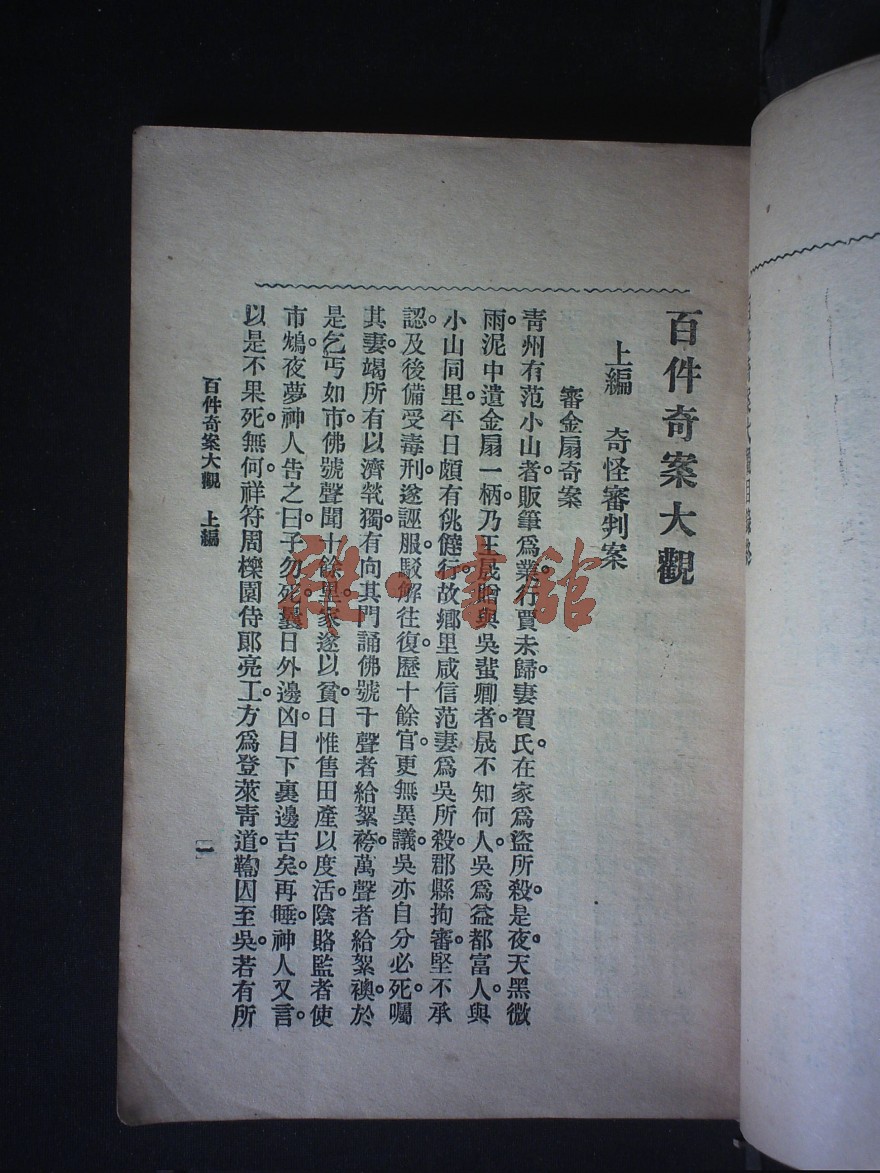 百件奇案大觀
上編　奇怪審判案
審金扇奇案
青州有范小山者販筆爲業。行賈未歸。妻賀氏在家爲盜所殺。是夜天黑微
雨。泥中遺金扇一柄。乃王晟贈與吳蜚卿者。晟不知何人。吳爲益都富人。與
小山同里。平日頗有佻健行。故鄉里咸信范妻爲吳所殺。郡縣拘審。堅不承
認。及後備受毒刑。遂誣服。駁解往復。歷十餘官。更無異議。吳亦自分必死。囑
其妻。竭所有以濟煢獨。有向其門誦佛號千聲者給絮袴。萬聲者給絮襖。於
是乞丐如市。佛號聲聞十餘里。家遂以貧。日惟售田產以度活。陰賂監者使
市鴆。夜夢神人告之曰。子勿死。曩日外邊凶。目下裏邊吉矣。再睡。神人又言。
以是不果死。無何。祥符周櫟園侍郎亮工。方爲登萊青道。輪囚至吳。若有所
百件奇案大觀　上編
一
雜·書館